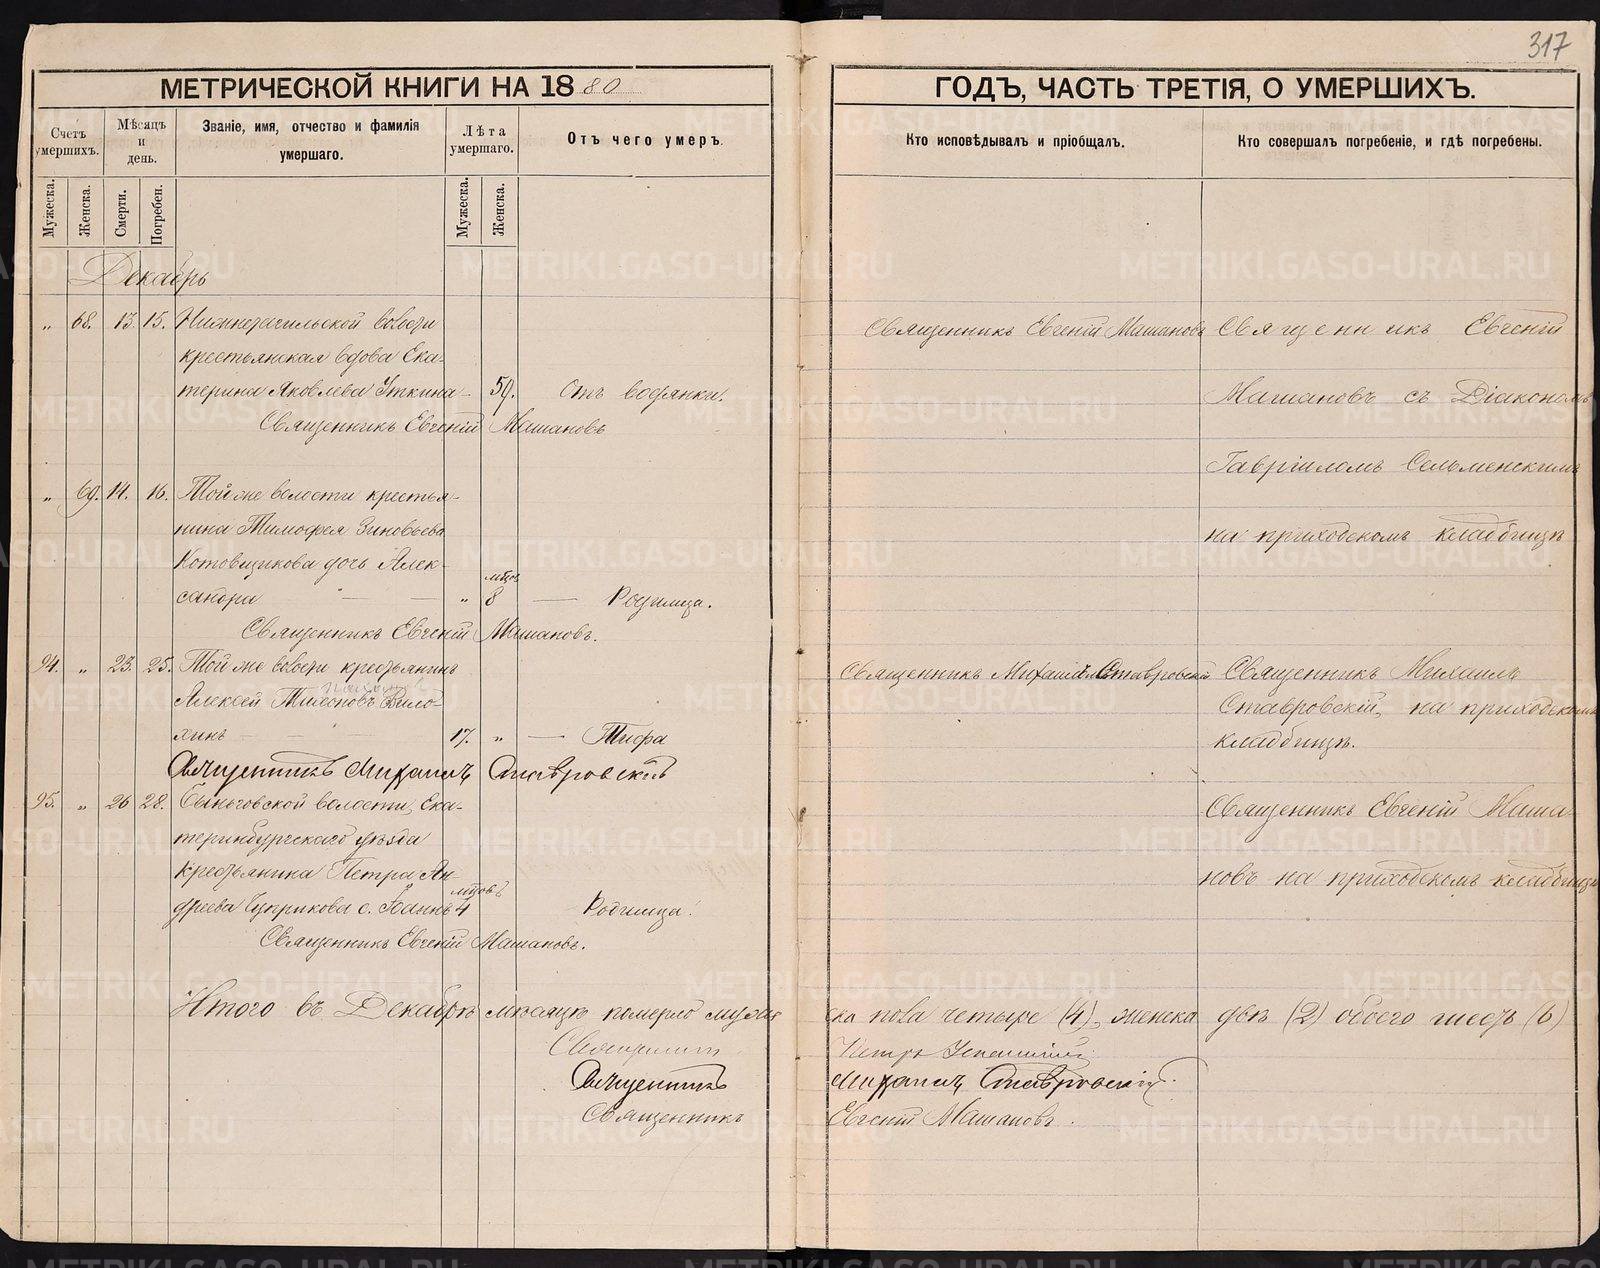 317
МЕТРИЧЕСКОЙ КНИГИ НА 1880
ГОДЪ, ЧАСТЬ ТРЕТІЯ, О УМЕРШИХЪ.
Счетъ умершихъ.
Мѣсяцъ и день.
Званіе, имя, отчество и фамилія умершаго.
Лѣта умершаго.
Отъ чего умеръ.
Кто исповѣдывалъ и пріобщалъ.
Кто совершалъ погребеніе, и гдѣ погребены.
Мужеска.
Женска.
Смерти.
Погребен.
Мужеска.
Женска.
Декабрь
„ 68. 13. 15. Нижнетагильской волости
крестьянская вдова Ека-
терина Яковлева Уткина 59. Отъ водянки.
Священникъ Евгеній Машановъ
Священникъ Евгеній Машановъ
Священникъ Евгеній
Машановъ съ Діакономъ
Гавріиломъ Сельменскимъ
на приходскомъ кладбищѣ
„ 69. 14. 16. Той же волости крестья-
нина Тимофея Зиновьева
Котовщикова дочь Алек-
сандра „ мѣсцов 8 Родимца.
Священникъ Евгеній Машановъ.
94. „ 23. 25. Той же волости крестьянинъ
Алексей Тихоновъ Вило-
хинъ 17. „ Тифа
Священникъ Михаилъ Ставровскій
Священникъ Михаилъ Ставровскій
Священникъ Михаилъ
Ставровскій, на приходскомъ
кладбищѣ.
95. „ 26 28. Быньговской волости, Ека-
теринбургскаго уѣзда
крестьянина Петра Ан-
дреева с. Іоаннъ мѣсцовъ 4 Родимца.
Священникъ Евгеній Машановъ.
Священникъ Евгеній Маша-
новъ на приходскомъ кладбищѣ
Итого въ Декабрѣ мѣсяцѣ померло мужес
ка пола четыре (4), женска двѣ (2) обоего шесть (6)
Священникъ Петръ
Священникъ Михаилъ Ставровскій.
Священникъ Евгеній Машановъ.
METRIKI.GASO-URAL.RU